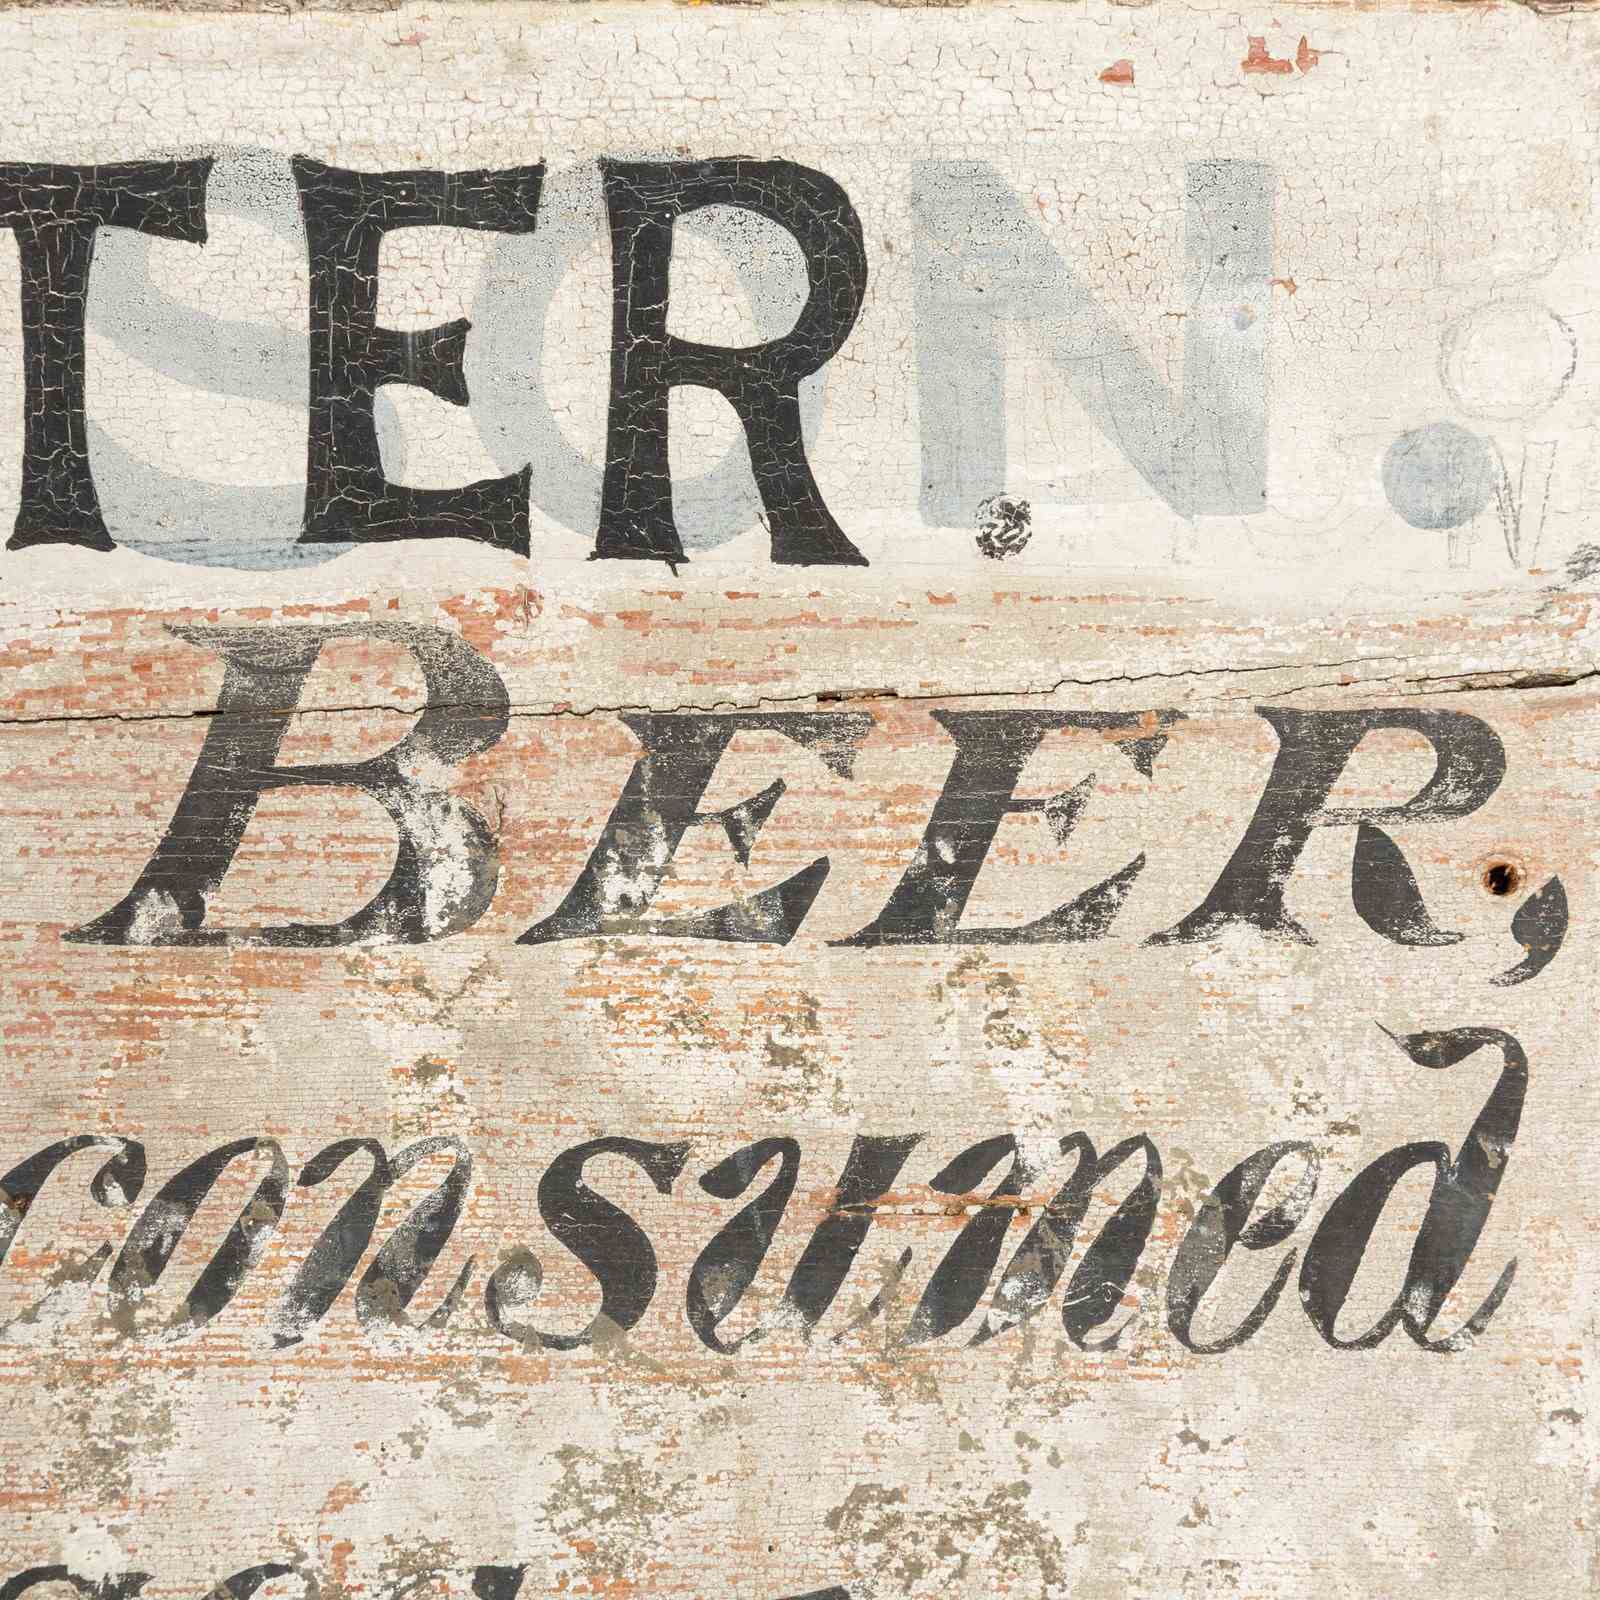 TER.
SON.
BEER,
consumed